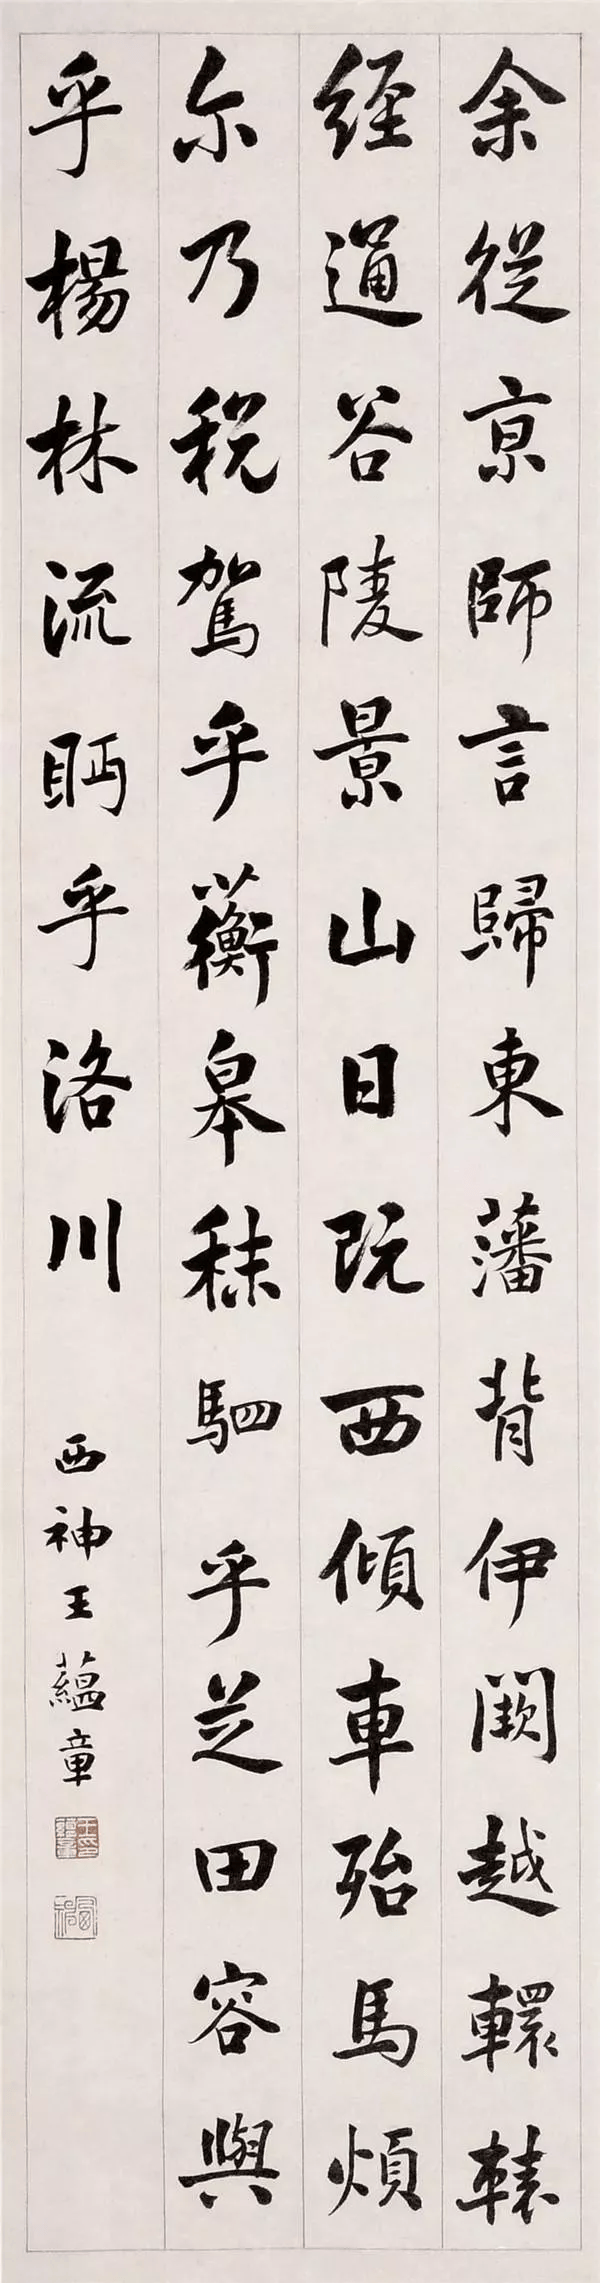 余從京師言歸東藩背伊闕越轘轅
經通谷陵景山日既西傾車殆馬煩
尒乃稅駕乎蘅皋秣駟乎芝田容與
乎楊林流眄乎洛川
西神王蘊章